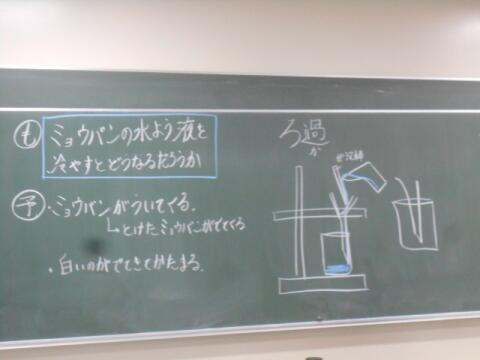 も ミョウバンの水よう液を
冷やすとどうなるだろうか
予 ・ミョウバンがういてくる。
とけたミョウバンがでてくる
・白いのがでてきてかたまる。
ろ過
か